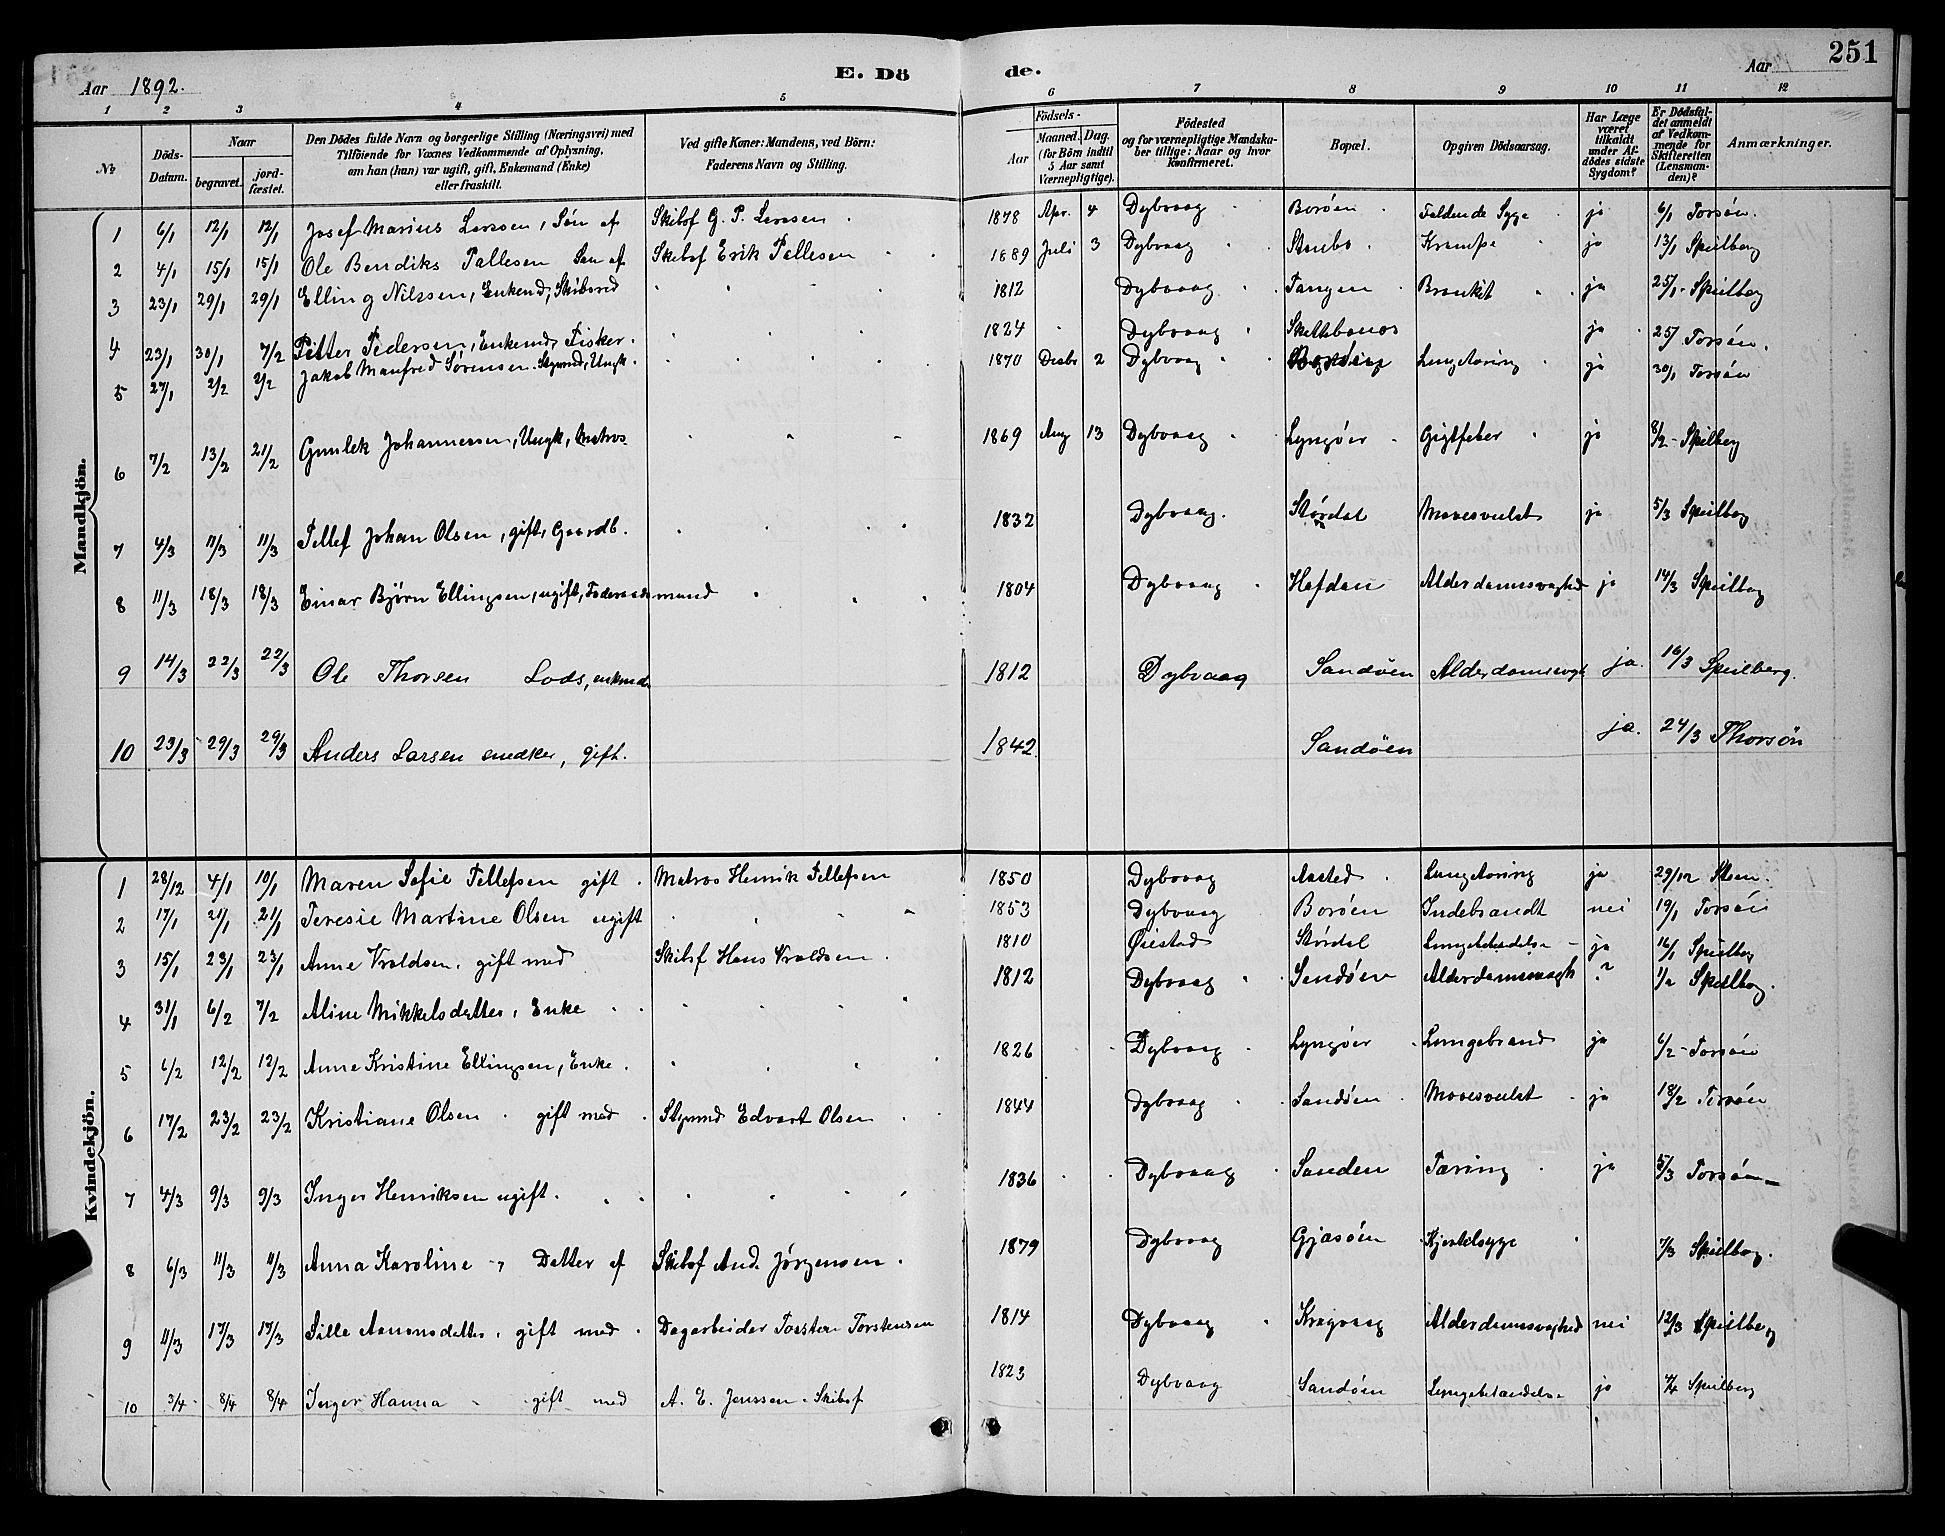 251
Aar 1892. E. Dö de. Aar
1 2 3 4 5 6 7 8 9 10 11 12
№ Döds-Datum. Naar begravet. jord-fæstet. Den Dödes fulde Navn og borgerlige Stilling (Næringsvei) med Tilföiende for Voxnes Vedkommende af Oplysning, om han (hun) var ugift, gift, Enkemand (Enke) eller fraskilt. Ved gifte Koner: Mandens, ved Börn: Faderens Navn og Stilling. Födsels- Aar Maaned. Dag. (for Börn indtil 5 Aar samt Værnepligtige). Födested og for værnepligtige Mandskaber tillige: Naar og hvor konfirmeret. Bopæl. Opgiven Dödsaarsag. Har Læge været tilkaldt under Afdödes sidste Sygdom? Er Dödsfaldet anmeldt af Vedkommende for Skifteretten (Lensmanden)? Anmærkninger.
Mandkjön.
1 6/1 12/1 12/1 Josef Marius Larssen, Søn af Skibsf G. P. Larssen 1878 Apr. 4 Dybvaag Borøen Faldende Syge ja 6/1 Torsøn.
2 4/1 15/1 15/1 Ole Bendiks Tallesen Søn af Skibsf Erik Tallesen 1889 Juli 3 Dybvaag Krampe ja 13/1 Spielberg
3 23/1 29/1 29/1 Elling Nilssen, Enkemd, Skibsred 1812 Dybvaag Tangen Bronkit ja 25/1 - Spielberg
4 23/1 30/1 7/2 Petter Pedersen, Enkemd, Fisker. 1824 Dybvaag ja 25/ Torsøn.
5 27/1 2/2 2/2 Jakob Manfred Sørensen. Styrmd, Ungk. 1870 Desbr 2 Dybvaag Lungetæring ja 30/1 Torsøn
6 7/2 13/2 21/2 Gunlek Johannessen, Ungk, Matros 1869 Aug 13 Dybvaag Lyngøer Gigtfeber ja 8/2 - Spielberg
7 4/3 11/3 11/3 Tellef Johan Olsen, gift, Gaardb. 1832 Dybvaag. Størdal Mavesvulst ja 5/3 Spielberg
8 11/3 18/3 18/3 Einar Bjørn Ellingsen, ugift, Foderaadsmand 1804 Dybvaag Alderdomssvaghed ja 14/3 Spielberg
9 14/3 22/3 22/3 Ole Thorsen Lods, enkmd 1812 Dybvaag Sandøen Alderdomssvagh ja. 16/3 Spielberg.
10 23/3 29/3 29/3 Anders Larsen snedker, gift. 1842 Sandøen ja. 24/3 Thorsøn
Kvindekjön.
1 28/12 4/1 10/1 Maren Sofie Tellefsen gift. Matros Henrik Tellefsen 1850 Dybvaag Aasted Lungetæring ja 29/12 Steen
2 17/1 21/1 21/1 Teresie Martine Olsen ugift 1853 Dybvaag Borøen Indebrandt nei 19/1 Torsøn
3 15/1 23/1 23/1 Anne Vraldsen. gift med Skibsf Hans Vraldsen. 1810 Øiestad Størdal Lungebetændelse - ja 16/1 Spielberg
4 31/1 6/2 7/2 Aline Mikkelsdatter, Enke 1812 Dybvaag Sandøen Alderdomssvagh ? 1/2 Spielberg.
5 6/2 12/2 12/2 Anne Kristine Ellingsen, Enke. 1826 Dybvaag Lyngøer Lungebrand ja 6/2 - Torsøn
6 17/2 23/2 23/2 Kristiane Olsen gift med Styrmd Edvart Olsen 1844 Dybvaag Sandøen Mavesvulst ja 18/2 Torsøn
7 4/3 9/3 9/3 Inger Henriksen ugift. 1836 Dybvaag Sanden Tæring ja 5/3 Torsøn
8 6/3 11/3 11/3 Anna Karoline Datter af Skibsf And. Jørgensen. 1879 Dybvaag Gjæsøen Kjertelsyge 7/3 Spielberg.
9 11/3 17/3 17/3 Sille Aanonsdatter. gift med Dagarbeider Torsten Torstensen 1814 Dybvaag Kragvaag Alderdomssvaghed nei 12/3 Spielberg
10 3/4 8/4 8/4 Inger Hanna gift med A. E. Jenssen - Skibsf 1823 Dybvaag Sandøen Lungebetændelse ja 4/4 Spielberg